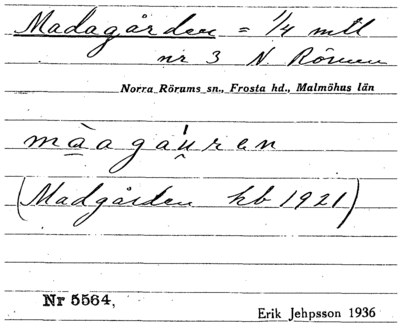 Madagården = 1/4 mtl
nr 3 N. Rörum
Norra Rörums sn., Frosta hd., Malmöhus län
mà̲agáu̯ren
(Madgården hb 1921)
Nr 5564,
Erik Jehpsson 1936